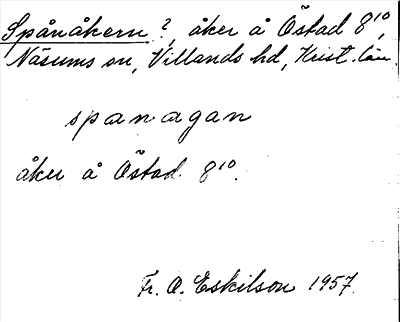 Spånåkern ?, åker å Östad 8¹⁰,
Näsums sn, Villands hd, Krist. län.
spanagan
åker å Östad 8¹⁰.
Fr. O. Eskilson 1957.